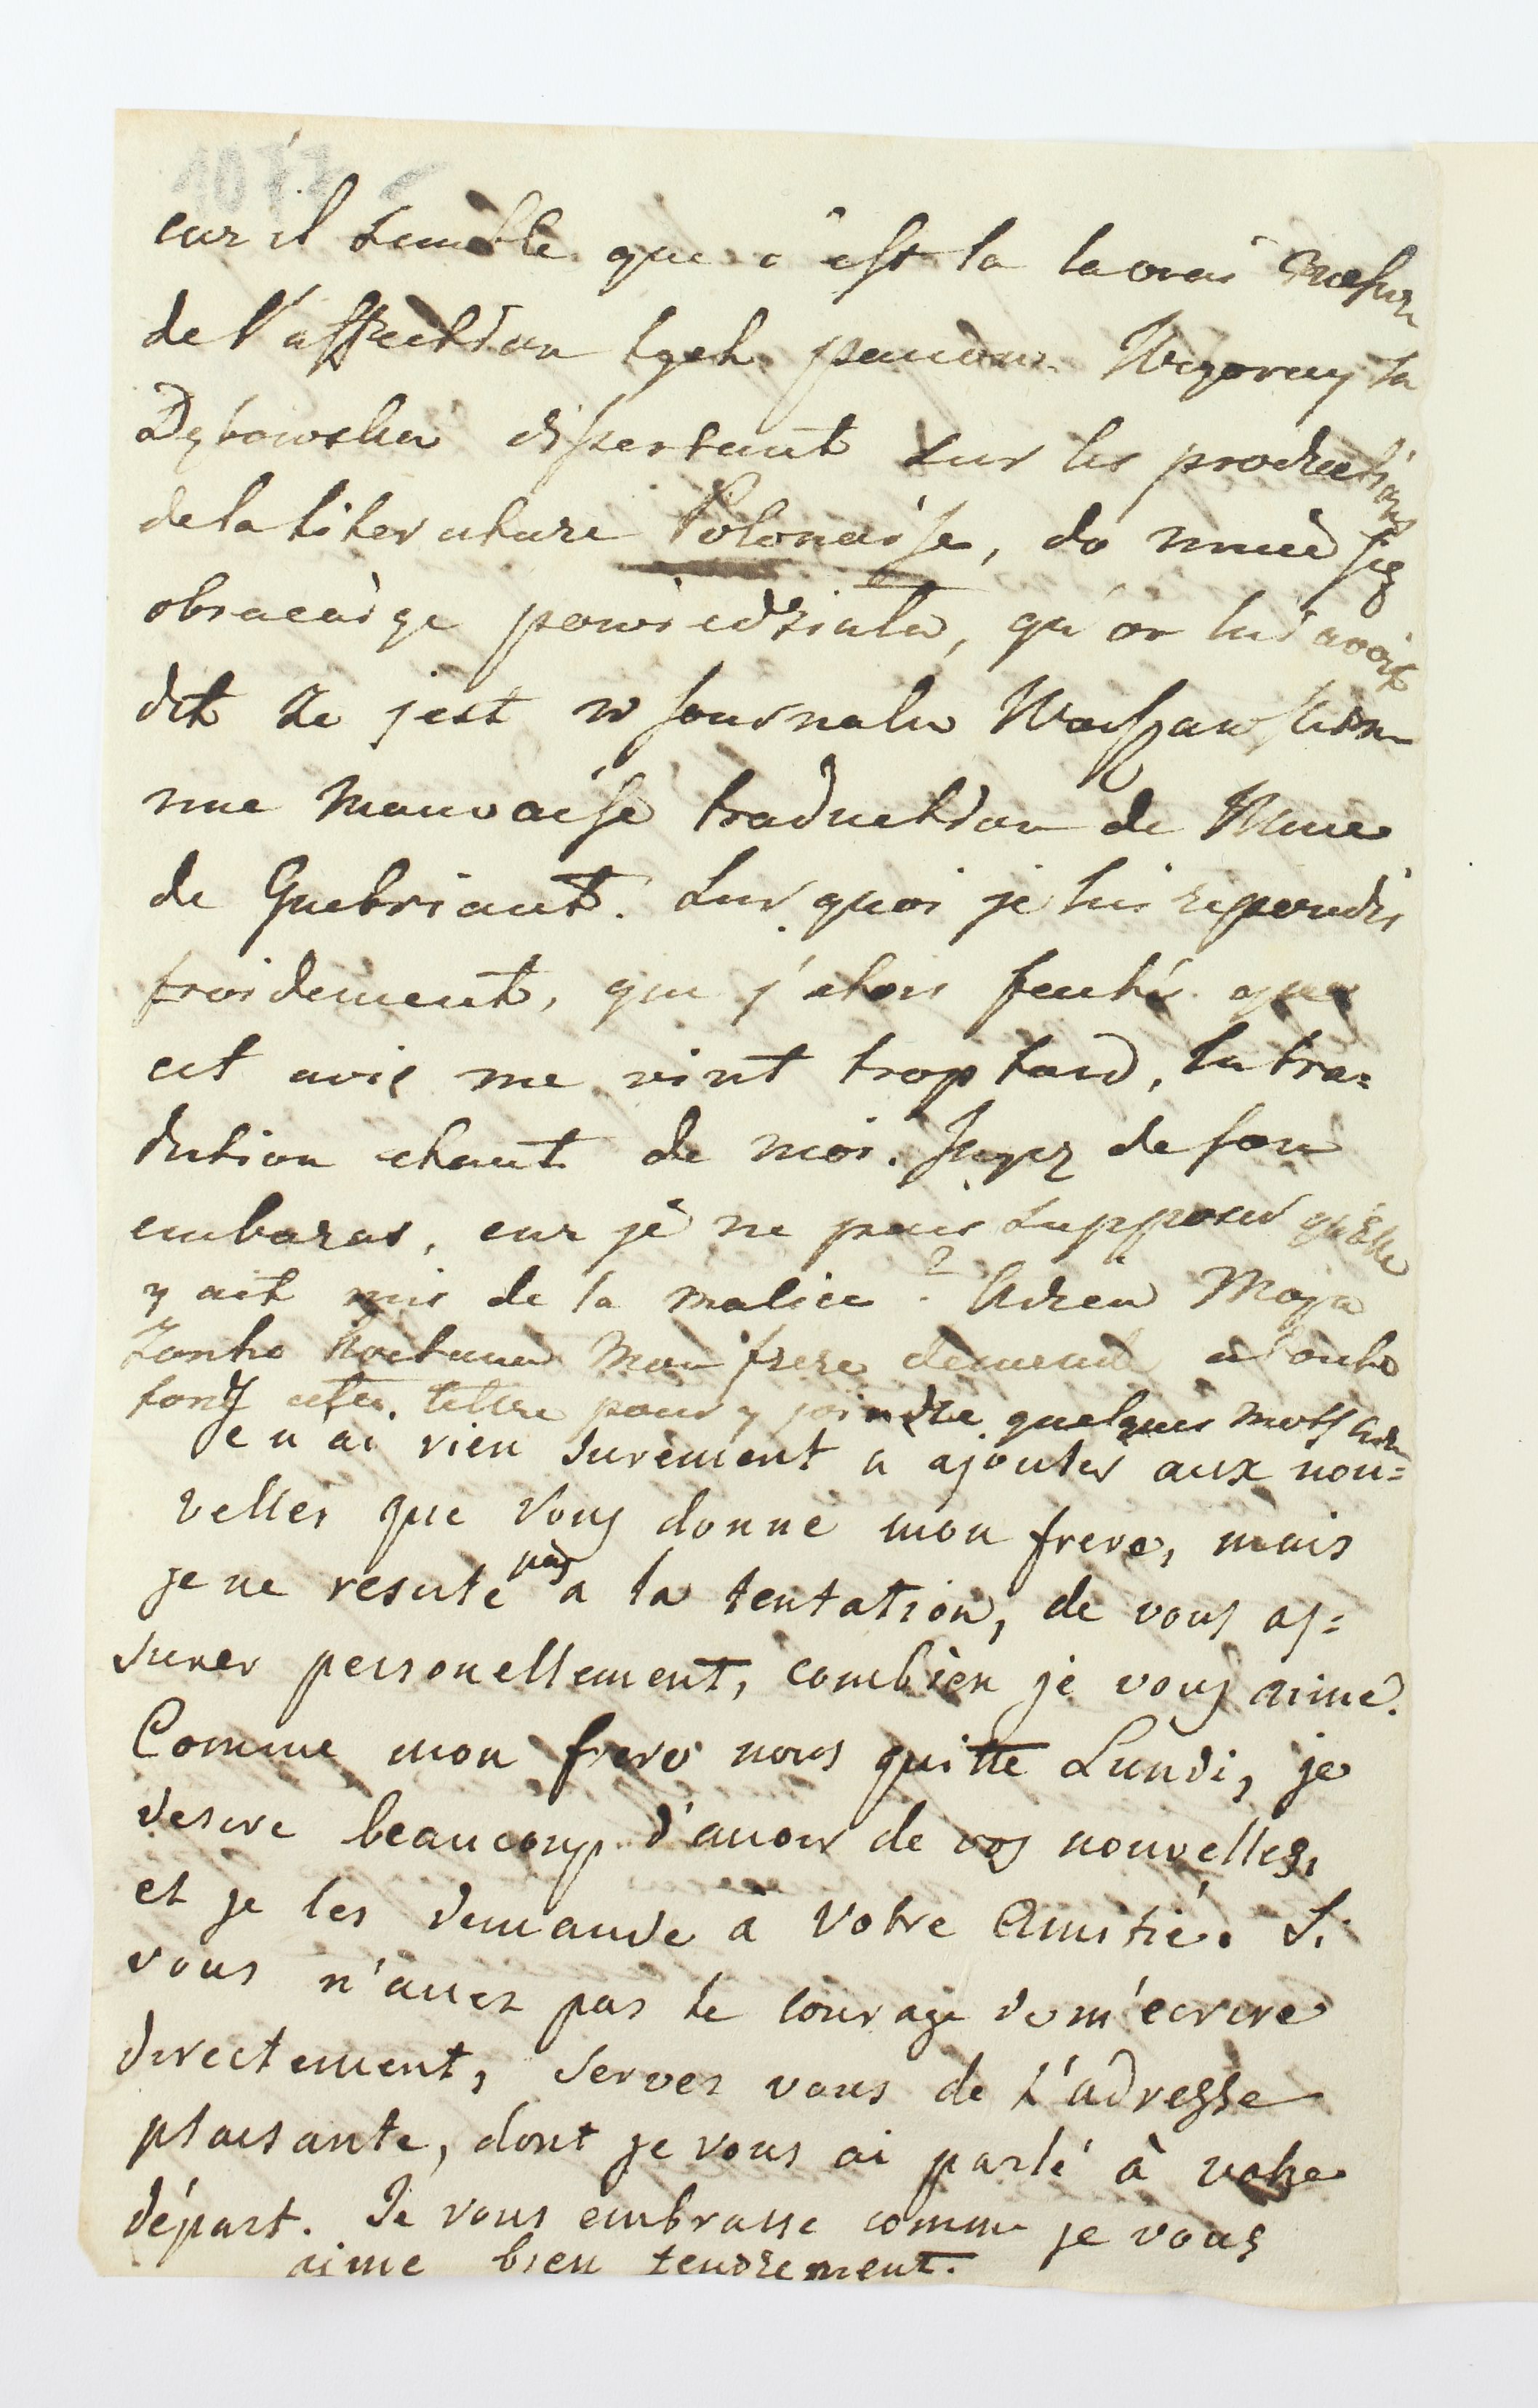 1077
car il semble que c'est la la vrai mesure
de l'affection tych panow. Wczoray la
Dębowska dissertant sur les productions
de la literature Polonaise, do mnie się
obracaiąc powiedziała, qu'on lui avoit
dit że jest w Journalu Warszawskim
une mauvaise traduction de Mme
de Guebriant. Sur quoi je lui repondis
froidement, que j'etois faché que
cet avis me vint trop tard, la tra=
dution etant de moi. Jugez de son
embaras, car je ne puis supposer qu'elle
y ait mis de la malice? Adieu Moja
Żonko kochana Mon frere demande
cette lettre pour y joindre quelques mots
Je n ai rien surement a ajouter aux nou=
velles que vous donne mon frere, mais
je ne resiste pas a la tentation, de vous as=
surer personellement, combien je vous aime.
Comme mon frere nous quitte Lundi, je
desire beaucoup d'avoir de vos nouvelles,
et je les demande a Votre Amitié. Si
vous n'avez pas le courage de m'ecrire
directement, servez vous de l'adresse
plaisante, dont je vous ai parlé à votre
départ. Je vous embrasse comme je vous
aime bien tendrement.